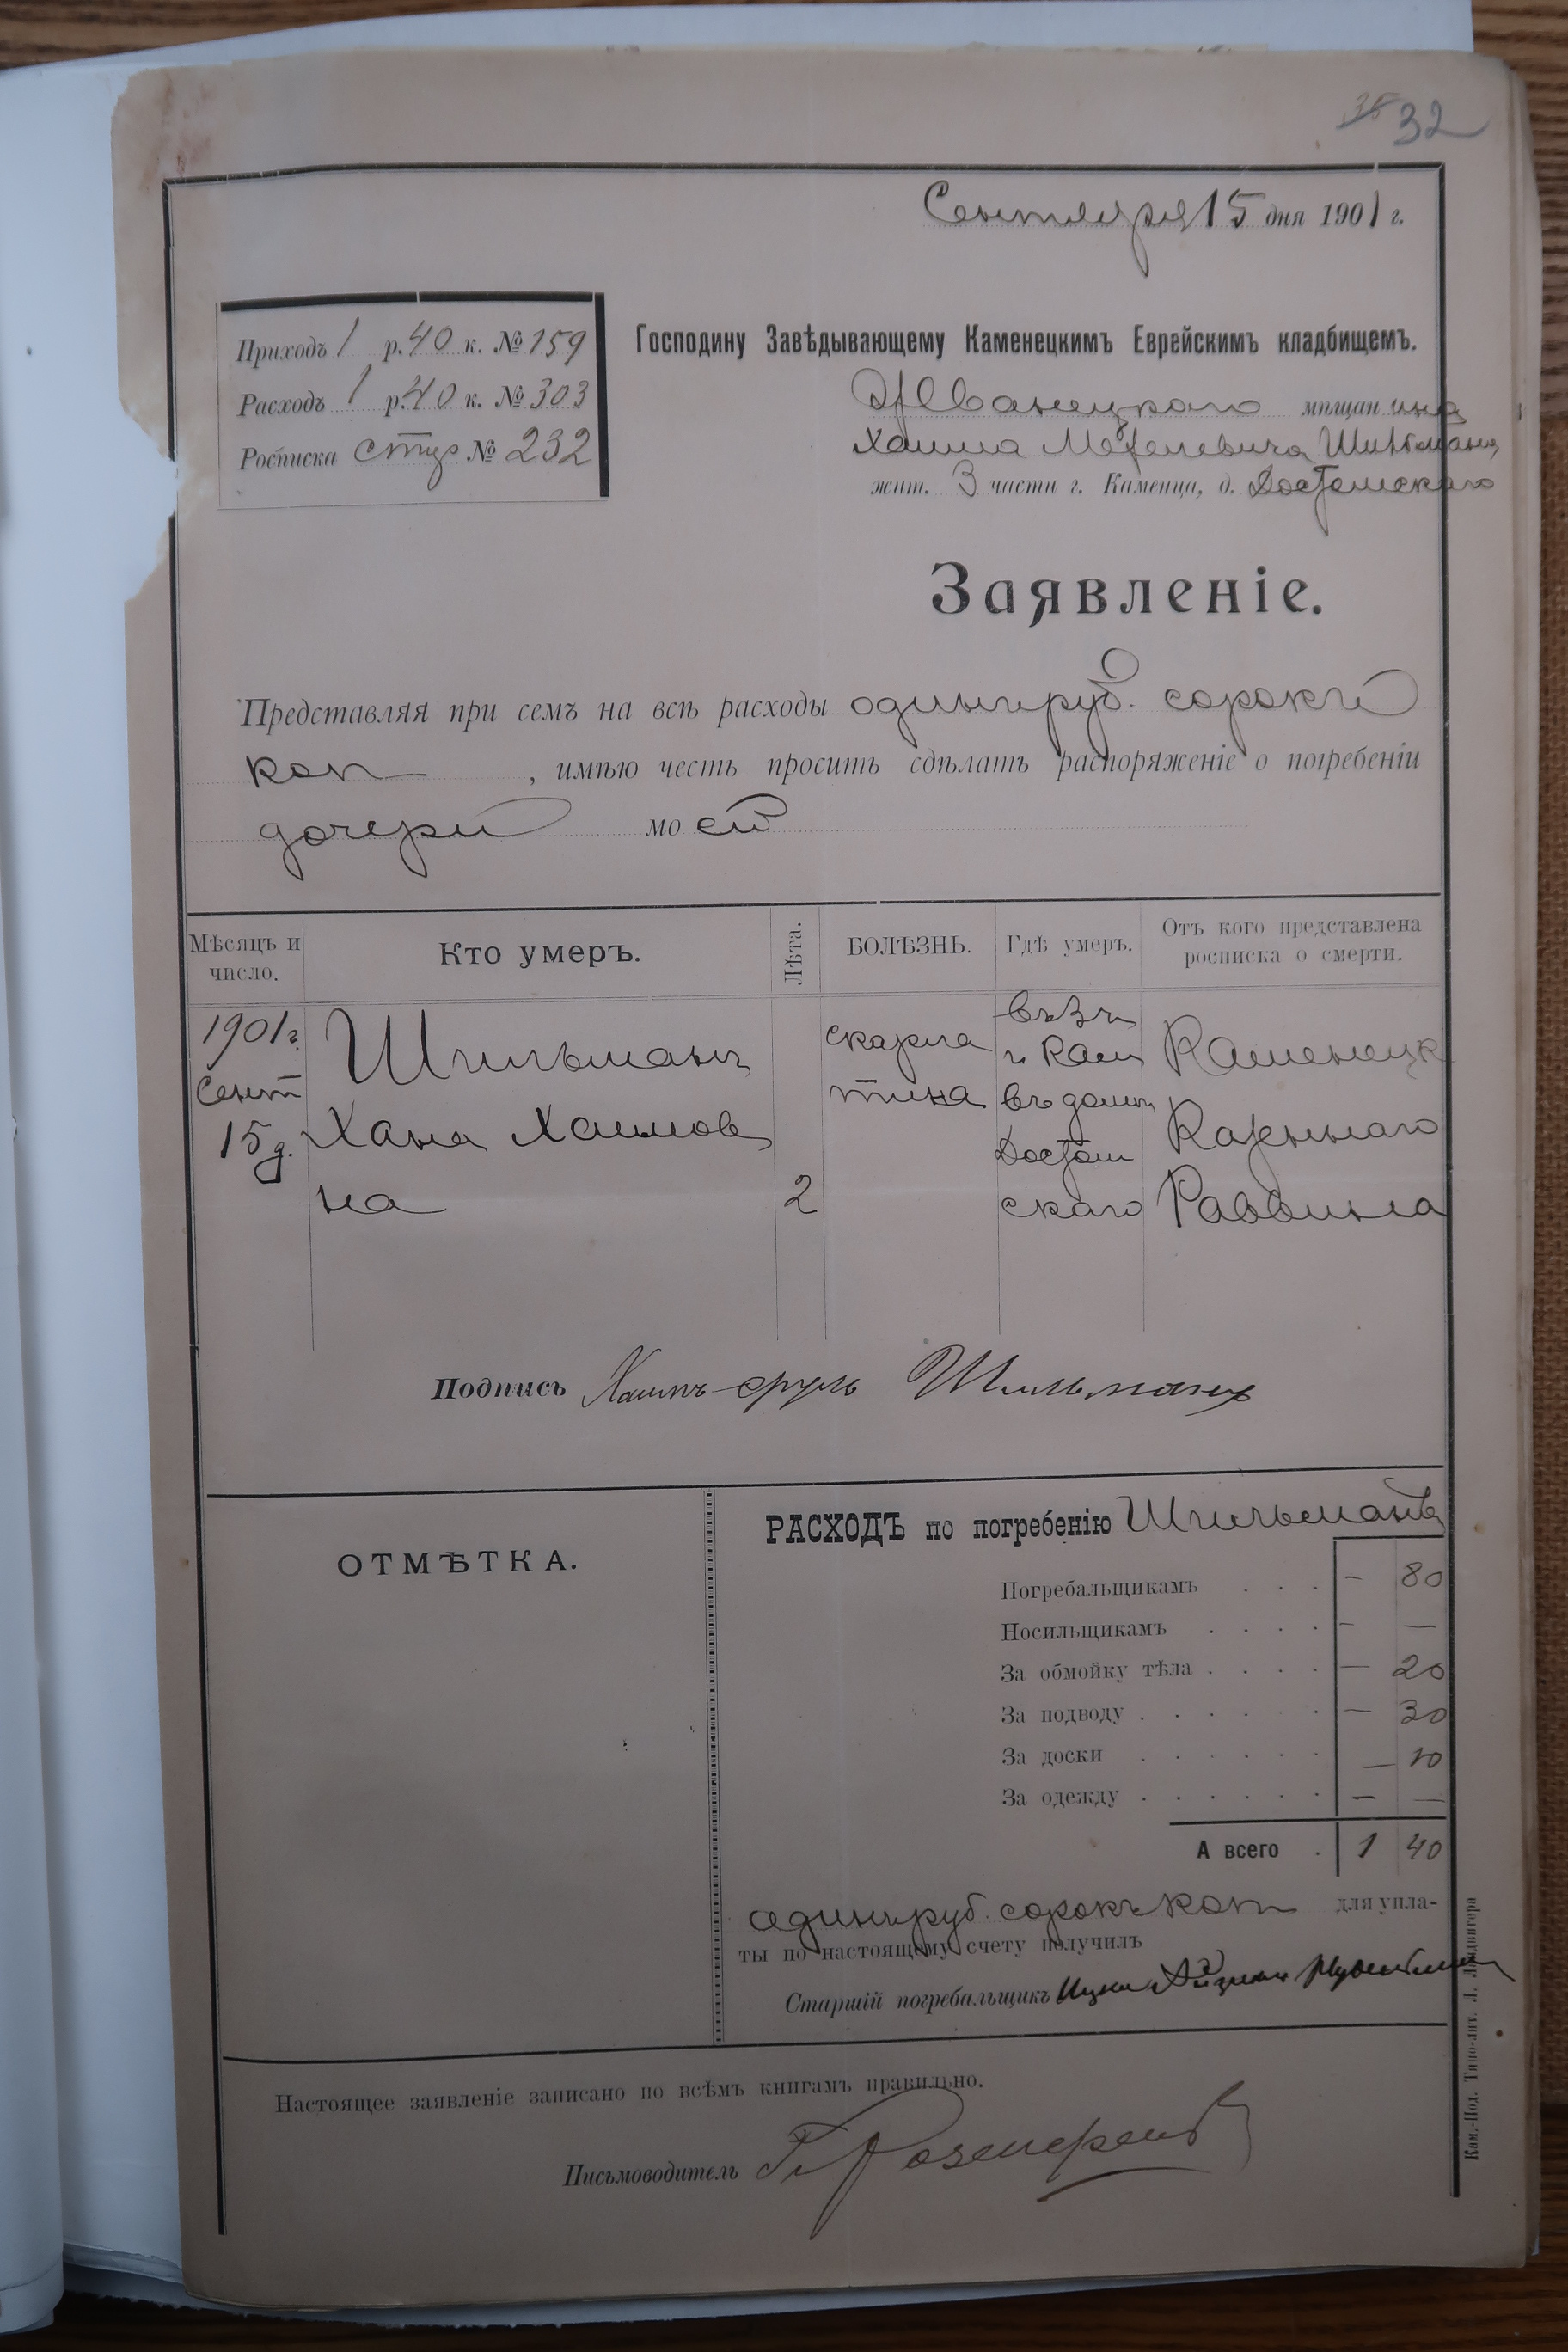 35 32
Сентября 15 дня 1901 г.
Приходъ 1 р. 40 к. № 159
Расходъ 1 р. 40 к. № 303
Росписка № 232
Господину Завѣдывающему Каменецкимъ Еврейскимъ кладбищемъ.
Жванецкаго мѣщанина
Хаима Шильмана
жит. 3 части г. Каменца, д.
Заявленіе.
Представляя при семъ на всѣ расходы одинъ руб. сорокъ
коп , имѣю честь просить сдѣлать распоряженіе о погребеніи
дочери моей
Мѣсяцъ и число. Кто умеръ. Лѣта. БОЛѢЗНЬ. Гдѣ умеръ. Отъ кого представлена росписка о смерти.
1901 г. Шильманъ скарла въ 3 ч Каменецк
Сент г. Кам
15 д. Хана Хаимов тина въ домѣ Казеннаго
на 2 скаго Раввина
Подпись Хаимъ-сруль Шильманъ
ОТМѢТКА.
РАСХОДЪ по погребенію Шильмана
Погребальщикамъ . . . — 80
Носильщикамъ . . . . — —
За обмойку тѣла . . . . — 20
За подводу . . . . . — 30
За доски . . . . . . — 10
За одежду . . . . . . — —
А всего . 1 40
одинъ руб. сорокъ коп для упла-
ты по настоящему счету получилъ
Старшій погребальщикъ Ицко
Настоящее заявленіе записано по всѣмъ книгамъ правильно.
Письмоводитель
Кам.-Под. Типо-лит. Л. Ландвигера